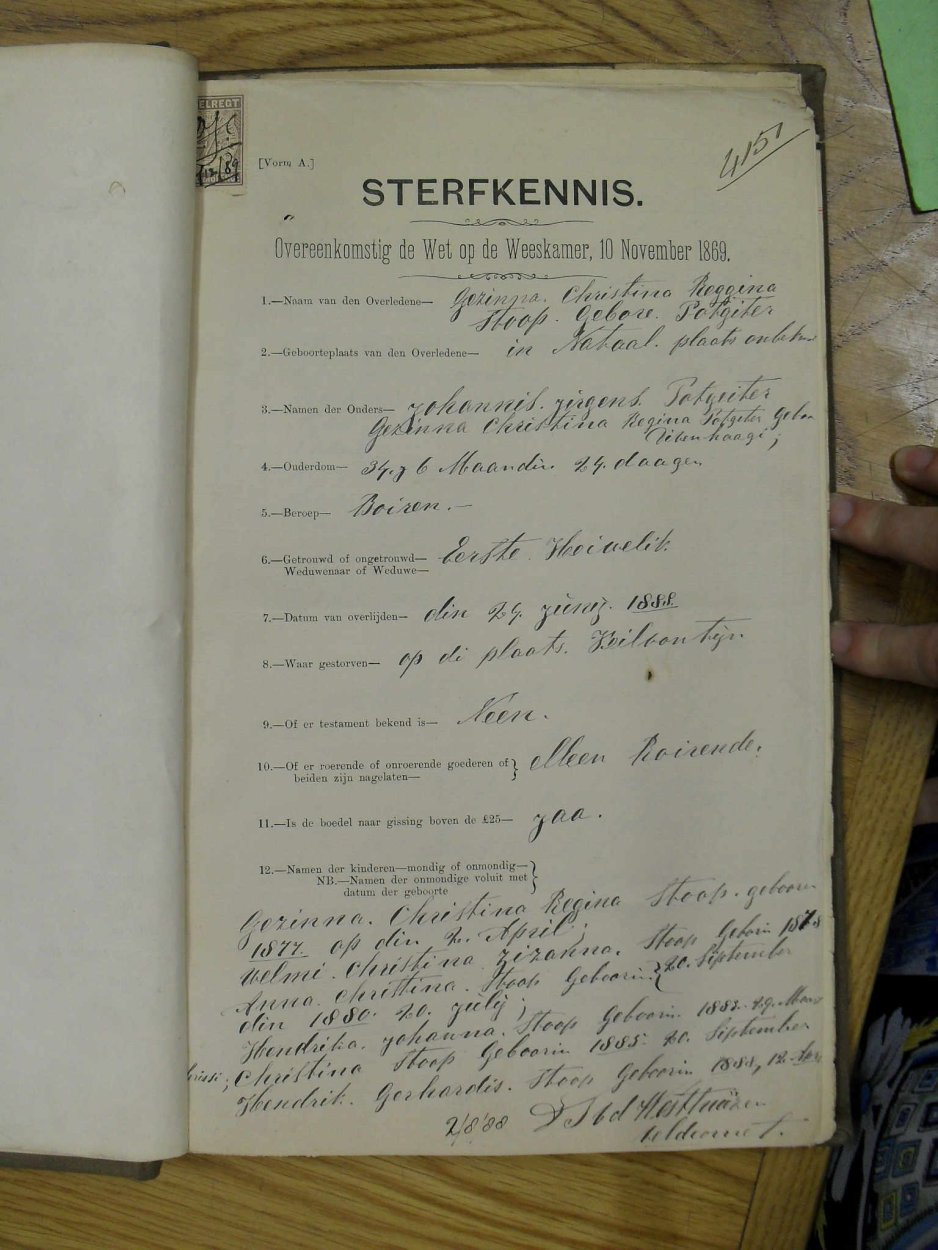 ELREGT
4151
[Vorm A.]
STERFKENNIS.
Overeenkomstig de Wet op de Weeskamer, 10 November 1869.
1.—Naam van den Overledene— Gezinna. Christina Reggina
Stoop. Gebore. Potgiter
2.—Geboorteplaats van den Overledene— in Nataal. plaats
3.—Namen der Ouders— Johannis. Jirgens. Potgeiter
Gezinna Christina Regina Potgeter
4.—Ouderdom— 34. J 6 Maandin 24. daagen
5.—Beroep— Boiren.—
6.—Getrouwd of ongetrouwd— Eerste. Hoiuelik
Weduwenaar of Weduwe—
7.—Datum van overlijden— din 24. Junij. 1888
8.—Waar gestorven— op di plaats.
9.—Of er testament bekend is— Neen.
10.—Of er roerende of onroerende goederen of } Alleen Roirende.
beiden zijn nagelaten—
11.—Is de boedel naar gissing boven de £25— Jaa.
12.—Namen der kinderen—mondig of onmondig— }
NB.—Namen der onmondige voluit met
datum der geboorte
Gezinna. Christina Regina Stoop. gebooren
1877. op din 2. April;
Welmi. Christina Zizanna. Stoop Geborin 1878
Anna Christina. Stoop Geboorin } 20. September
din 1880. 20. Julij;
Hendrika. Johanna. Stoop Geboorin 1883. 29.
Christina Stoop Geboorin 1885. 20. September
Hendrik. Gerhardis. Stoop Geboorin 1888, 12.
2/8/88